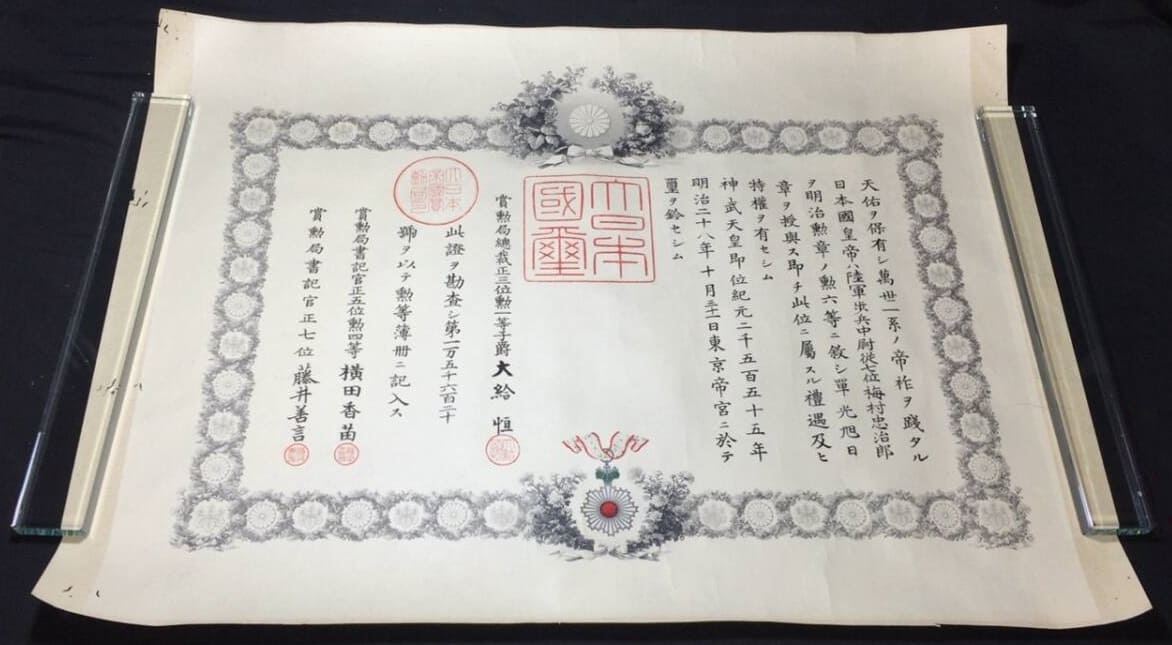 天佑ヲ保有シ萬世一系ノ帝祚ヲ踐タル
日本國皇帝ハ陸軍歩兵中尉従七位梅村忠治郎
ヲ明治勲章ノ勲六等ニ敘シ單光旭日
章ヲ授與ス即チ此位ニ屬スル禮遇及ヒ
特權ヲ有セシム
神武天皇即位紀元二千五百五十五年
明治二十八年十月三十一日東京帝宮ニ於テ
璽ヲ鈐セシム
大日本國璽
賞勲局總裁正三位勲一等子爵大給恒
此證ヲ勘査シ第一万五千六百二十
號ヲ以テ勲等簿册ニ記入ス
賞勲局書記官正五位勲四等横田香苗
賞勲局書記官正七位藤井善言